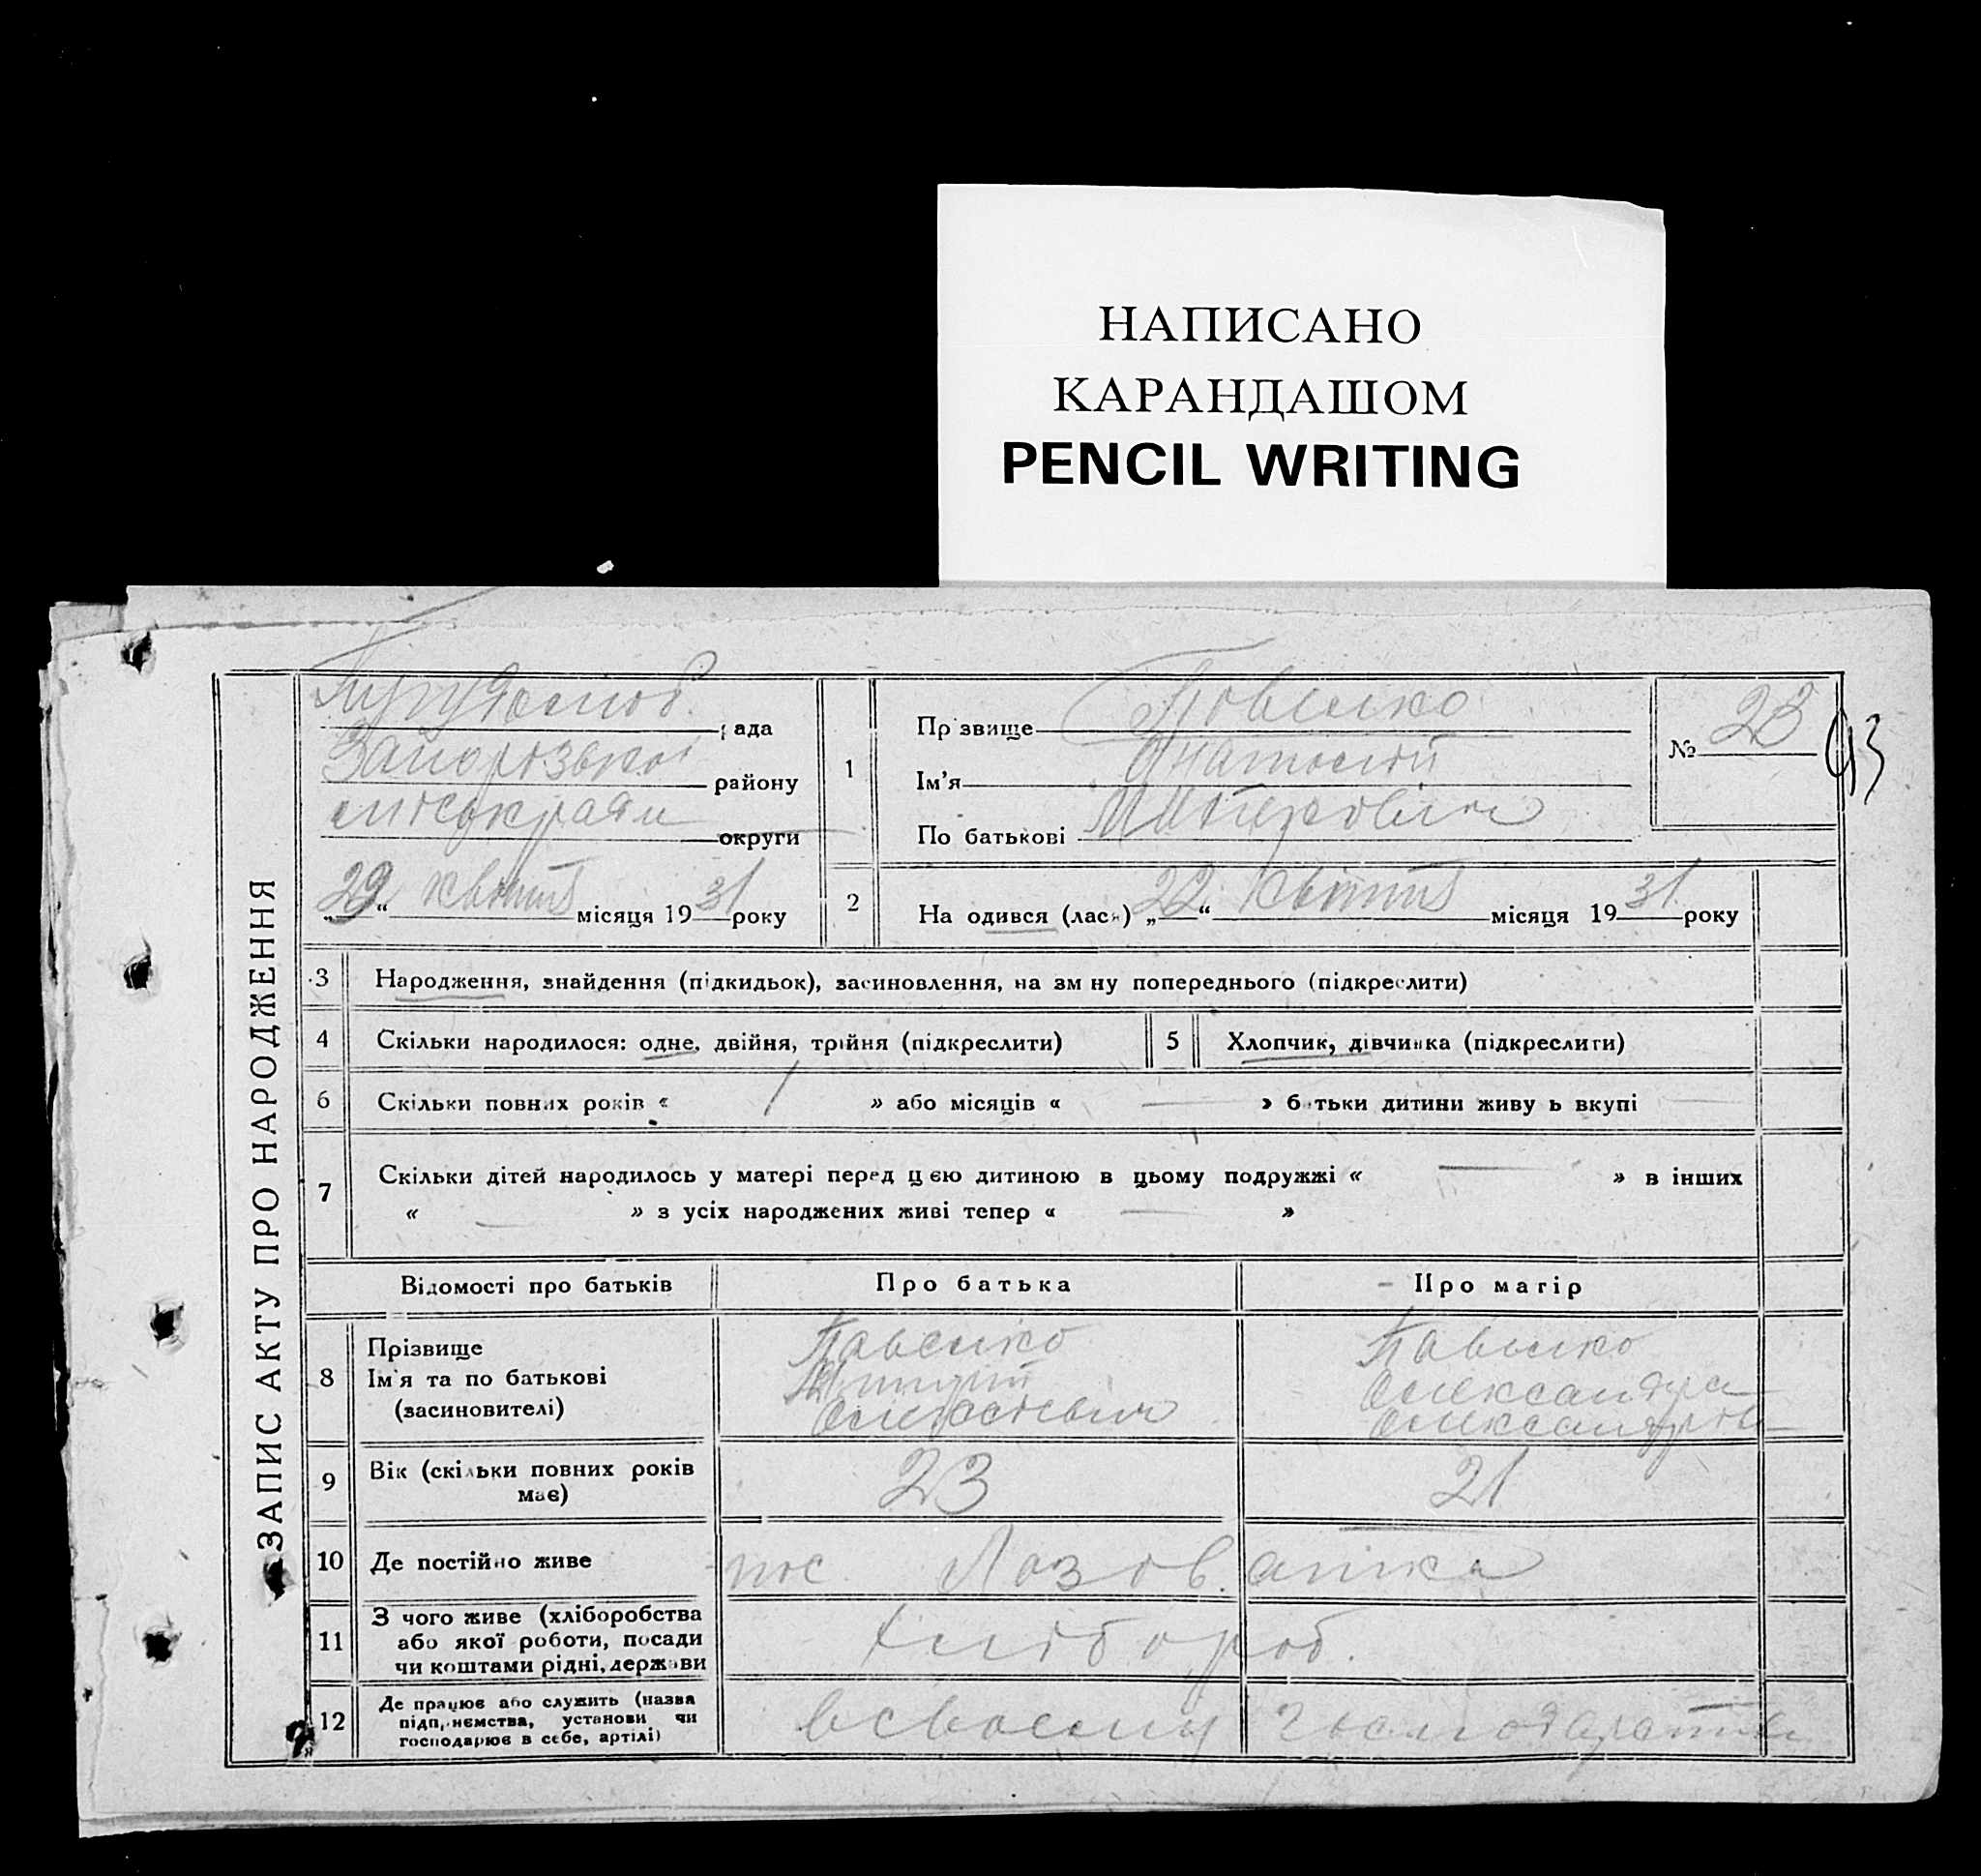 НАПИСАНО
КАРАНДАШОМ
PENCIL WRITING
ЗАПИС АКТУ ПРО НАРОДЖЕННЯ
рада
району
округи
„29“ квітня місяця 1931 року
1
Прізвище
Ім'я Анатолій
По батькові
№ 23
93
2
Народився (лася) „22“ квітня місяця 1931 року
3 Народження, знайдення (підкидьок), засиновлення, на зміну попереднього (підкреслити)
4 Скільки народилося: одне, двійня, трійня (підкреслити)
5 Хлопчик, дівчинка (підкреслити)
6 Скільки повних років « 1 » або місяців « — » батьки дитини живуть вкупі —
7 Скільки дітей народилось у матері перед цією дитиною в цьому подружжі « — » в інших
« — » з усіх народжених живі тепер « — »
Відомості про батьків Про батька Про матір
8 Прізвище Павенко Павенко
Ім'я та по батькові Олександра
(засиновителі) Олександрів
9 Вік (скільки повних років має) 23 21
10 Де постійно живе пос. Лозоватка
11 З чого живе (хліборобства або якої роботи, посади чи коштами рідні, держави хлібороб.
12 Де працює або служить (назва підприємства, установи чи господарює в себе, артілі) в своему